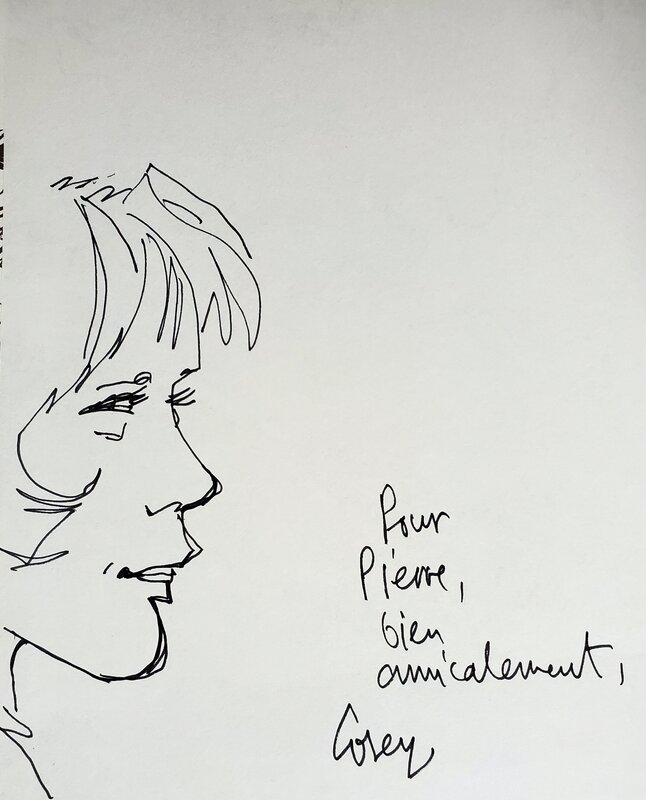 Pour
Pierre,
bien
amicalement,
Cosey